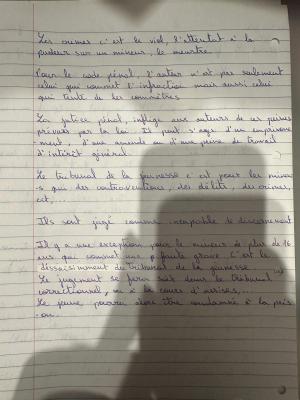 Les crimes c'est le viol, l'attentat à la
pudeur sur un mineur, le meurtre.
Pour le code pénal, l'auteur n'est pas seulement
celui qui commet l'infraction mais aussi celui
qui tente de les commettre.
La justice pénal, inflige aux auteurs de ces peines
prévues par la loi. Il peut s'agir d'un emprisonne
-ment, d'une amende ou d'une peine de travail
d'intérêt général.
Le tribunal de la jeunesse c'est pour les mineur
-s qui des contraventions, des délits, des crimes,
ect,...
Ils sont jugé comme incapable de discernement
Il y a une exception pour le mineurs de plus de 16
ans qui commet une faute grave. C'est le
dessaisissement du tribunal de la jeunesse.
Le jugement se fera soit devant le tribunal
correctionnel, ou à la cours d'assises,...
Le jeune pourra alors être condamné à la pris
-on.